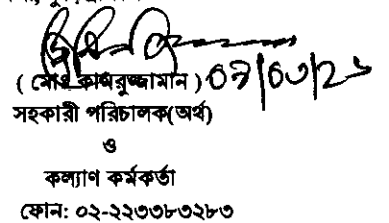 ( মোঃ কামরুজ্জামান )
সহকারী পরিচালক(অর্থ)
ও
কল্যাণ কর্মকর্তা
ফোন: ০২-২২৩৩৮৩২৮৩